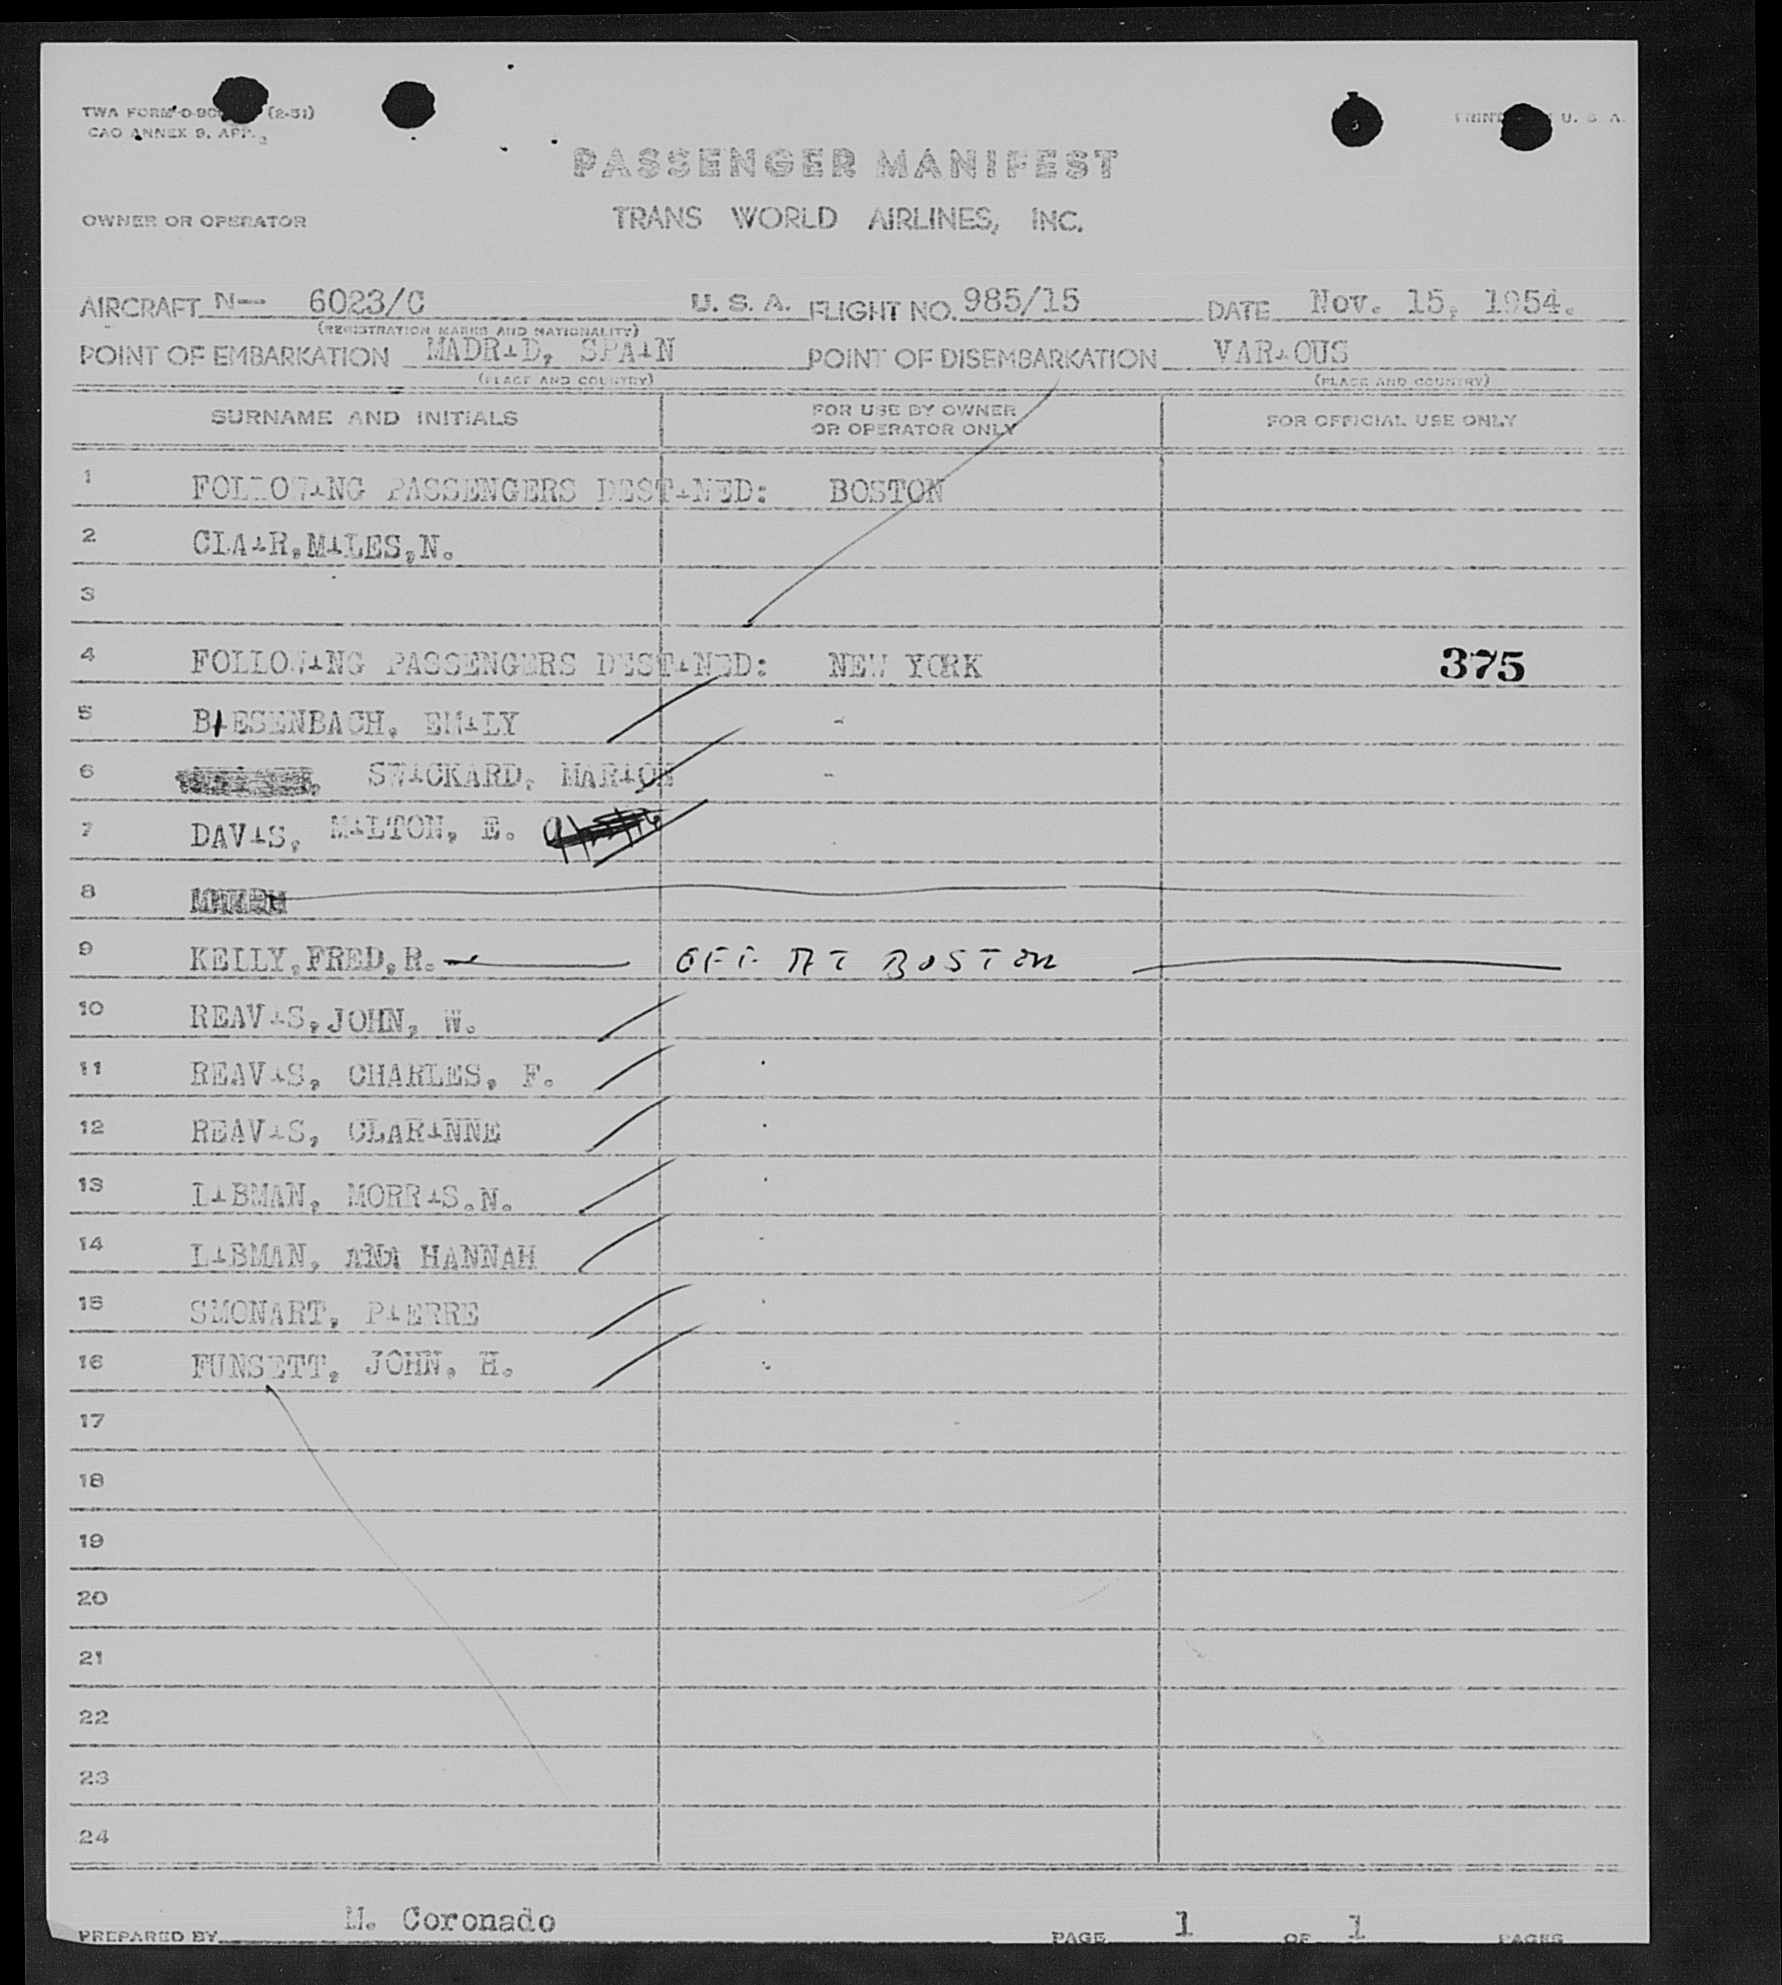 TWA FORM (2-51)
PRINT U. S. A.
CAO ANNEX 9, APP. 2
PASSENGER MANIFEST
OWNER OR OPERATOR TRANS WORLD AIRLINES, INC.
AIRCRAFT N— 6023/C U. S. A. FLIGHT NO. 985/15 DATE Nov. 15, 1954.
(REGISTRATION MARKS AND NATIONALITY)
POINT OF EMBARKATION MADRID, SPAIN POINT OF DISEMBARKATION VARIOUS
(PLACE AND COUNTRY) (PLACE AND COUNTRY)
SURNAME AND INITIALS FOR USE BY OWNER OR OPERATOR ONLY FOR OFFICIAL USE ONLY
1 FOLLOWING PASSENGERS DESTINED: BOSTON
2 CLAIR, MILES, N.
3
4 FOLLOWING PASSENGERS DESTINED: NEW YORK 375
5 BIESENBACH, EMILY
6 SWICKARD, MARION
7 DAVIS, MILTON, E.
8
9 KELLY, FRED, R. — OFF AT BOSTON
10 REAVIS, JOHN, W.
11 REAVIS, CHARLES, F.
12 REAVIS, CLARINNE
13 LIBMAN, MORRIS.N.
14 LIBMAN, HANNAH
15 SMONART, PIERRE
16 FUNSETT, JOHN, H.
17
18
19
20
21
22
23
24
PREPARED BY M. Coronado PAGE 1 OF 1 PAGES